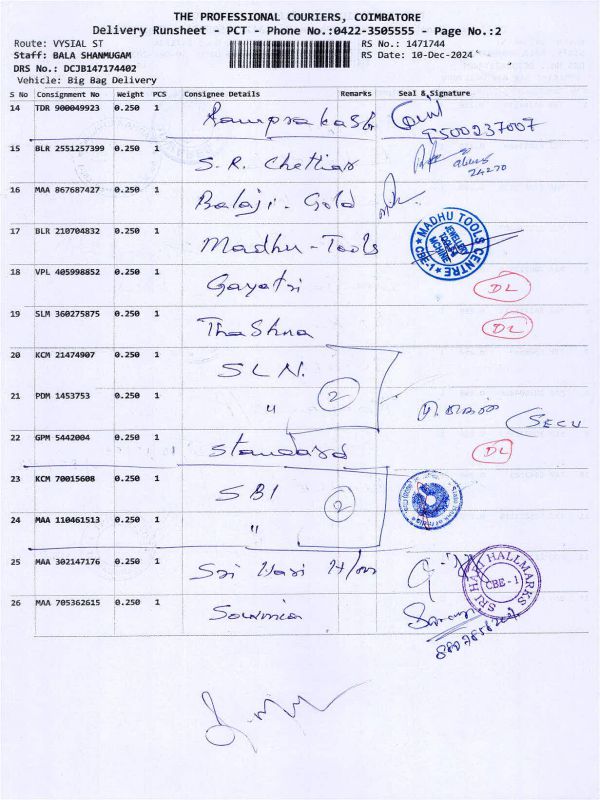 THE PROFESSIONAL COURIERS, COIMBATORE
Delivery Runsheet - PCT - Phone No.:0422-3505555 - Page No.:2
Route: VYSIAL ST RS No.: 1471744
Staff: BALA SHANMUGAM RS Date: 10-Dec-2024
DRS No.: DCJB147174402
Vehicle: Big Bag Delivery
S No Consignment No Weight PCS Consignee Details Remarks Seal & Signature
14 TDR 900049923 0.250 1 Ramprakash
9500237007
15 BLR 2551257399 0.250 1 S.R. Chettiar
24270
16 MAA 867687427 0.250 1 Balaji. Gold
17 BLR 210704832 0.250 1 Madhu-Tools MADHU TOOLS CENTRE CBE-1
18 VPL 405998852 0.250 1 Gayatri DL
19 SLM 360275875 0.250 1 Thashna DL
20 KCM 21474907 0.250 1 SLN.
21 PDM 1453753 0.250 1 " 2 SECU
22 GPM 5442004 0.250 1 Standard DL
23 KCM 70015608 0.250 1 SBI 2
24 MAA 110461513 0.250 1 "
25 MAA 302147176 0.250 1 Sri Hari H/m SRI HARI HALLMARKS CBE - 1
26 MAA 705362615 0.250 1 Sowmia